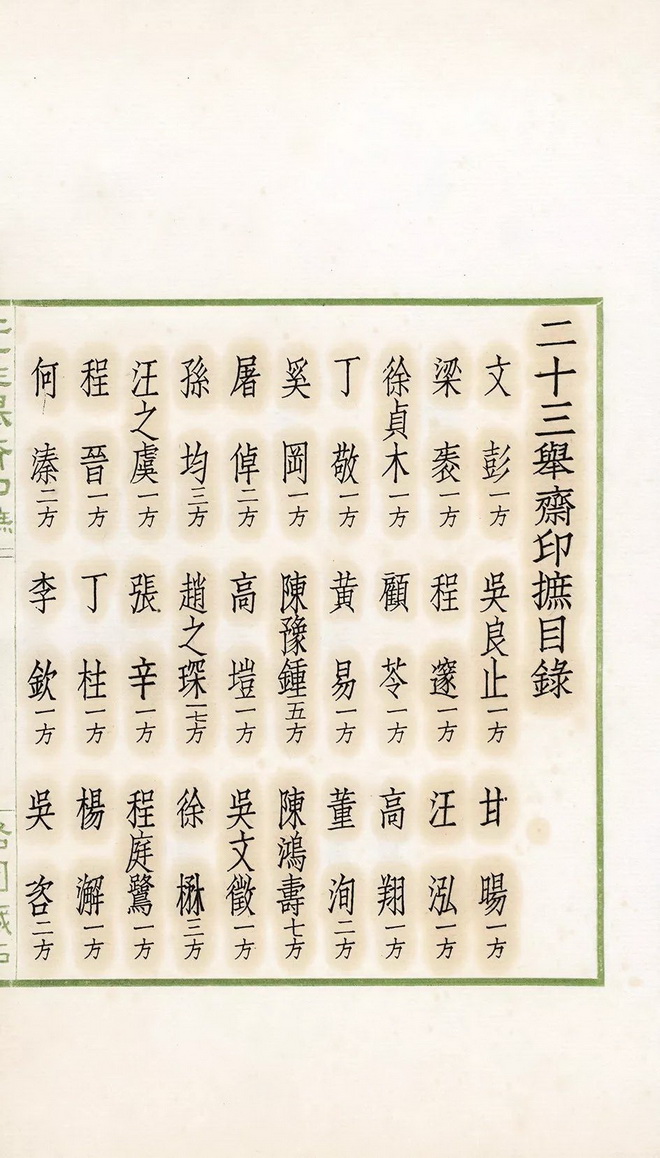 二十三舉齋印摭目錄
文彭一方 吳良止一方 甘暘一方
梁袠一方 程邃一方 汪泓一方
徐貞木一方 顧苓一方 高翔一方
丁敬一方 黃易一方 董洵二方
奚岡一方 陳豫鍾五方 陳鴻壽七方
屠倬二方 高塏一方 吳文徵一方
孫均三方 趙之琛十七方 徐楙三方
汪之虞一方 張辛一方 程庭鷺一方
程晉一方 丁柱一方 楊澥一方
何溱二方 李欽一方 吳咨二方